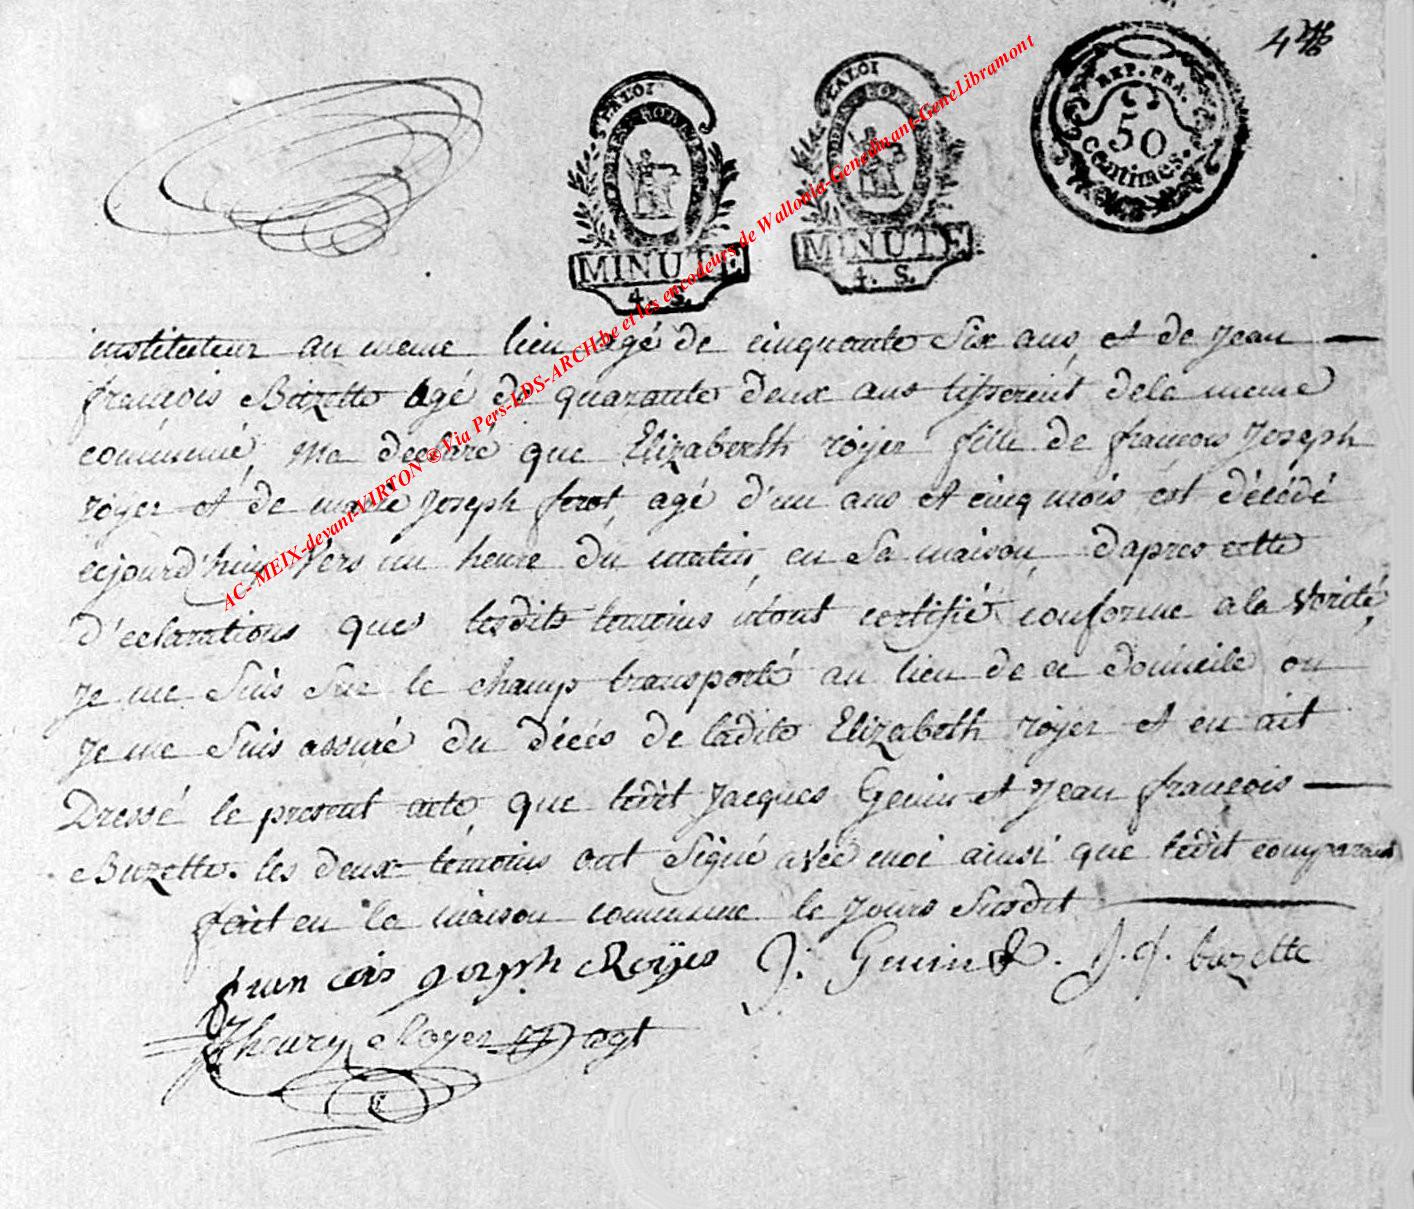 LA LOI
LA LOI
REP. FRA.
50
centimes.
MINUTE
4. S.
MINUTE
4. S.
AC- MEIX-devant-VIRTON ® Via Pers-LDS-ARCH.be et les encodeurs de Wallonia-Genedinant-GeneLibramont
instituteur au meme lieu agé de cinquante six ans, et de Jean
francois Buzette agé de quarante deux ans tisserent dela meme
commune, ma declaré que Elizaberth royer fille de francois Joseph
royer et de marie Joseph forot, agé d'un ans et cinq mois est décédé
cejourd'huy vers un heure du matin, en sa maison, dapres cette
d'eclarations que lesdits temoins mont certifié conforme a la vérité,
Je me suis sur le champs transporté au lieu de ce domicile ou
Je me suis assuré du décés de ladite Elizabeth royer et en ait
Dressé le present acte que ledit Jacques Genin et Jean francois
Buzette. les deux témoins ont signé avec moi ainsi que ledit comparant
fait en la maison commune le Jours susdit
fran cois Joseph Royer J. Genin J. f. buzette
Jhenry Royer agt